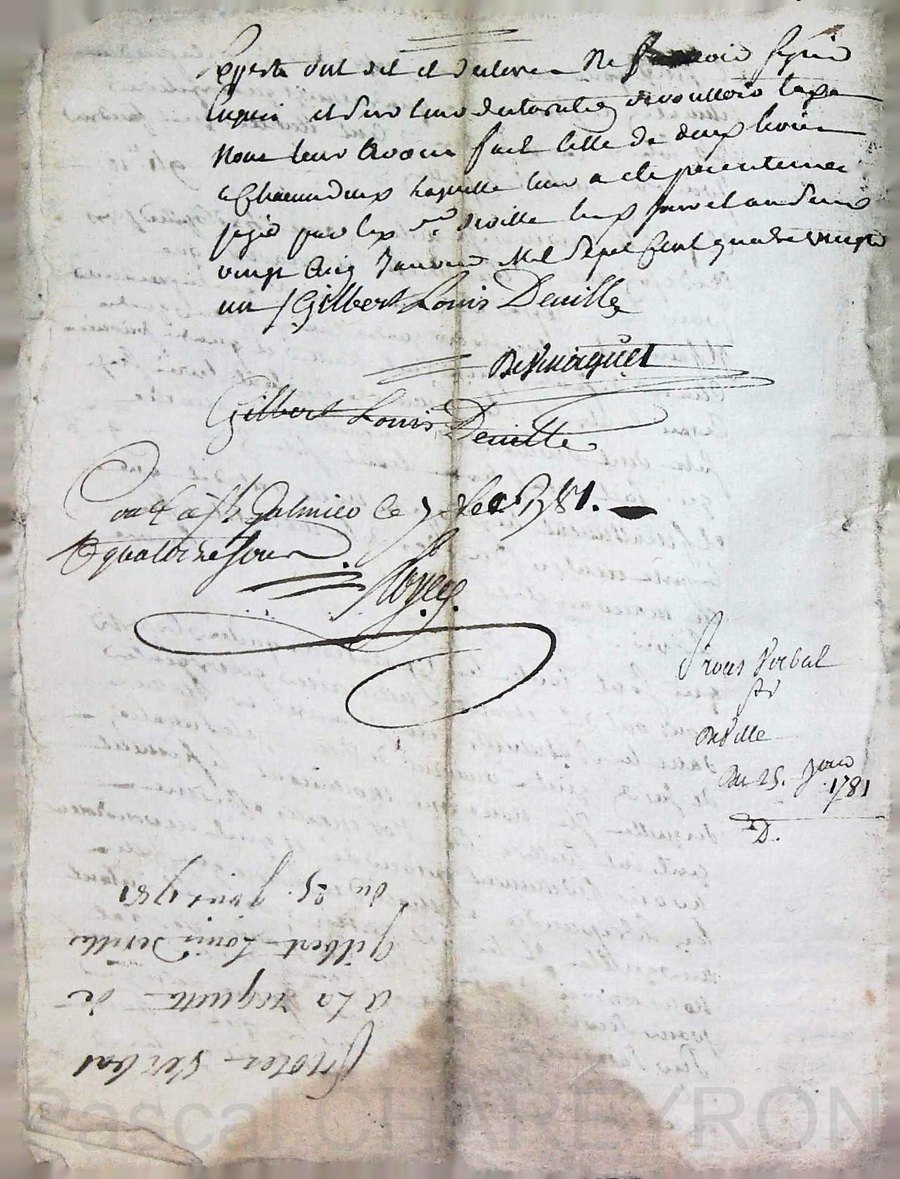 ont dit et declaré ne signer
enquis et sur leur declaration de voulloir taxe
Nous leur avons fait celle de deux livres
a Chacun deux laquelle leur a ete presentement
payée par led. Sr. Deville led. jour et an
vingt cinq Janvier Mil Sept Cent quatre vingts
un / Gilbert Louis Deville
Gilbert Louis Deville
a St. Galmier le 1781.
quatorze sous
Procès Verbal
pr
Deville
du 25. Janv.
1781
D.
Procces Verbal
a La requette de
Gilbert Louis Deville
du 25. janv. 1781
Pascal CHAREYRON